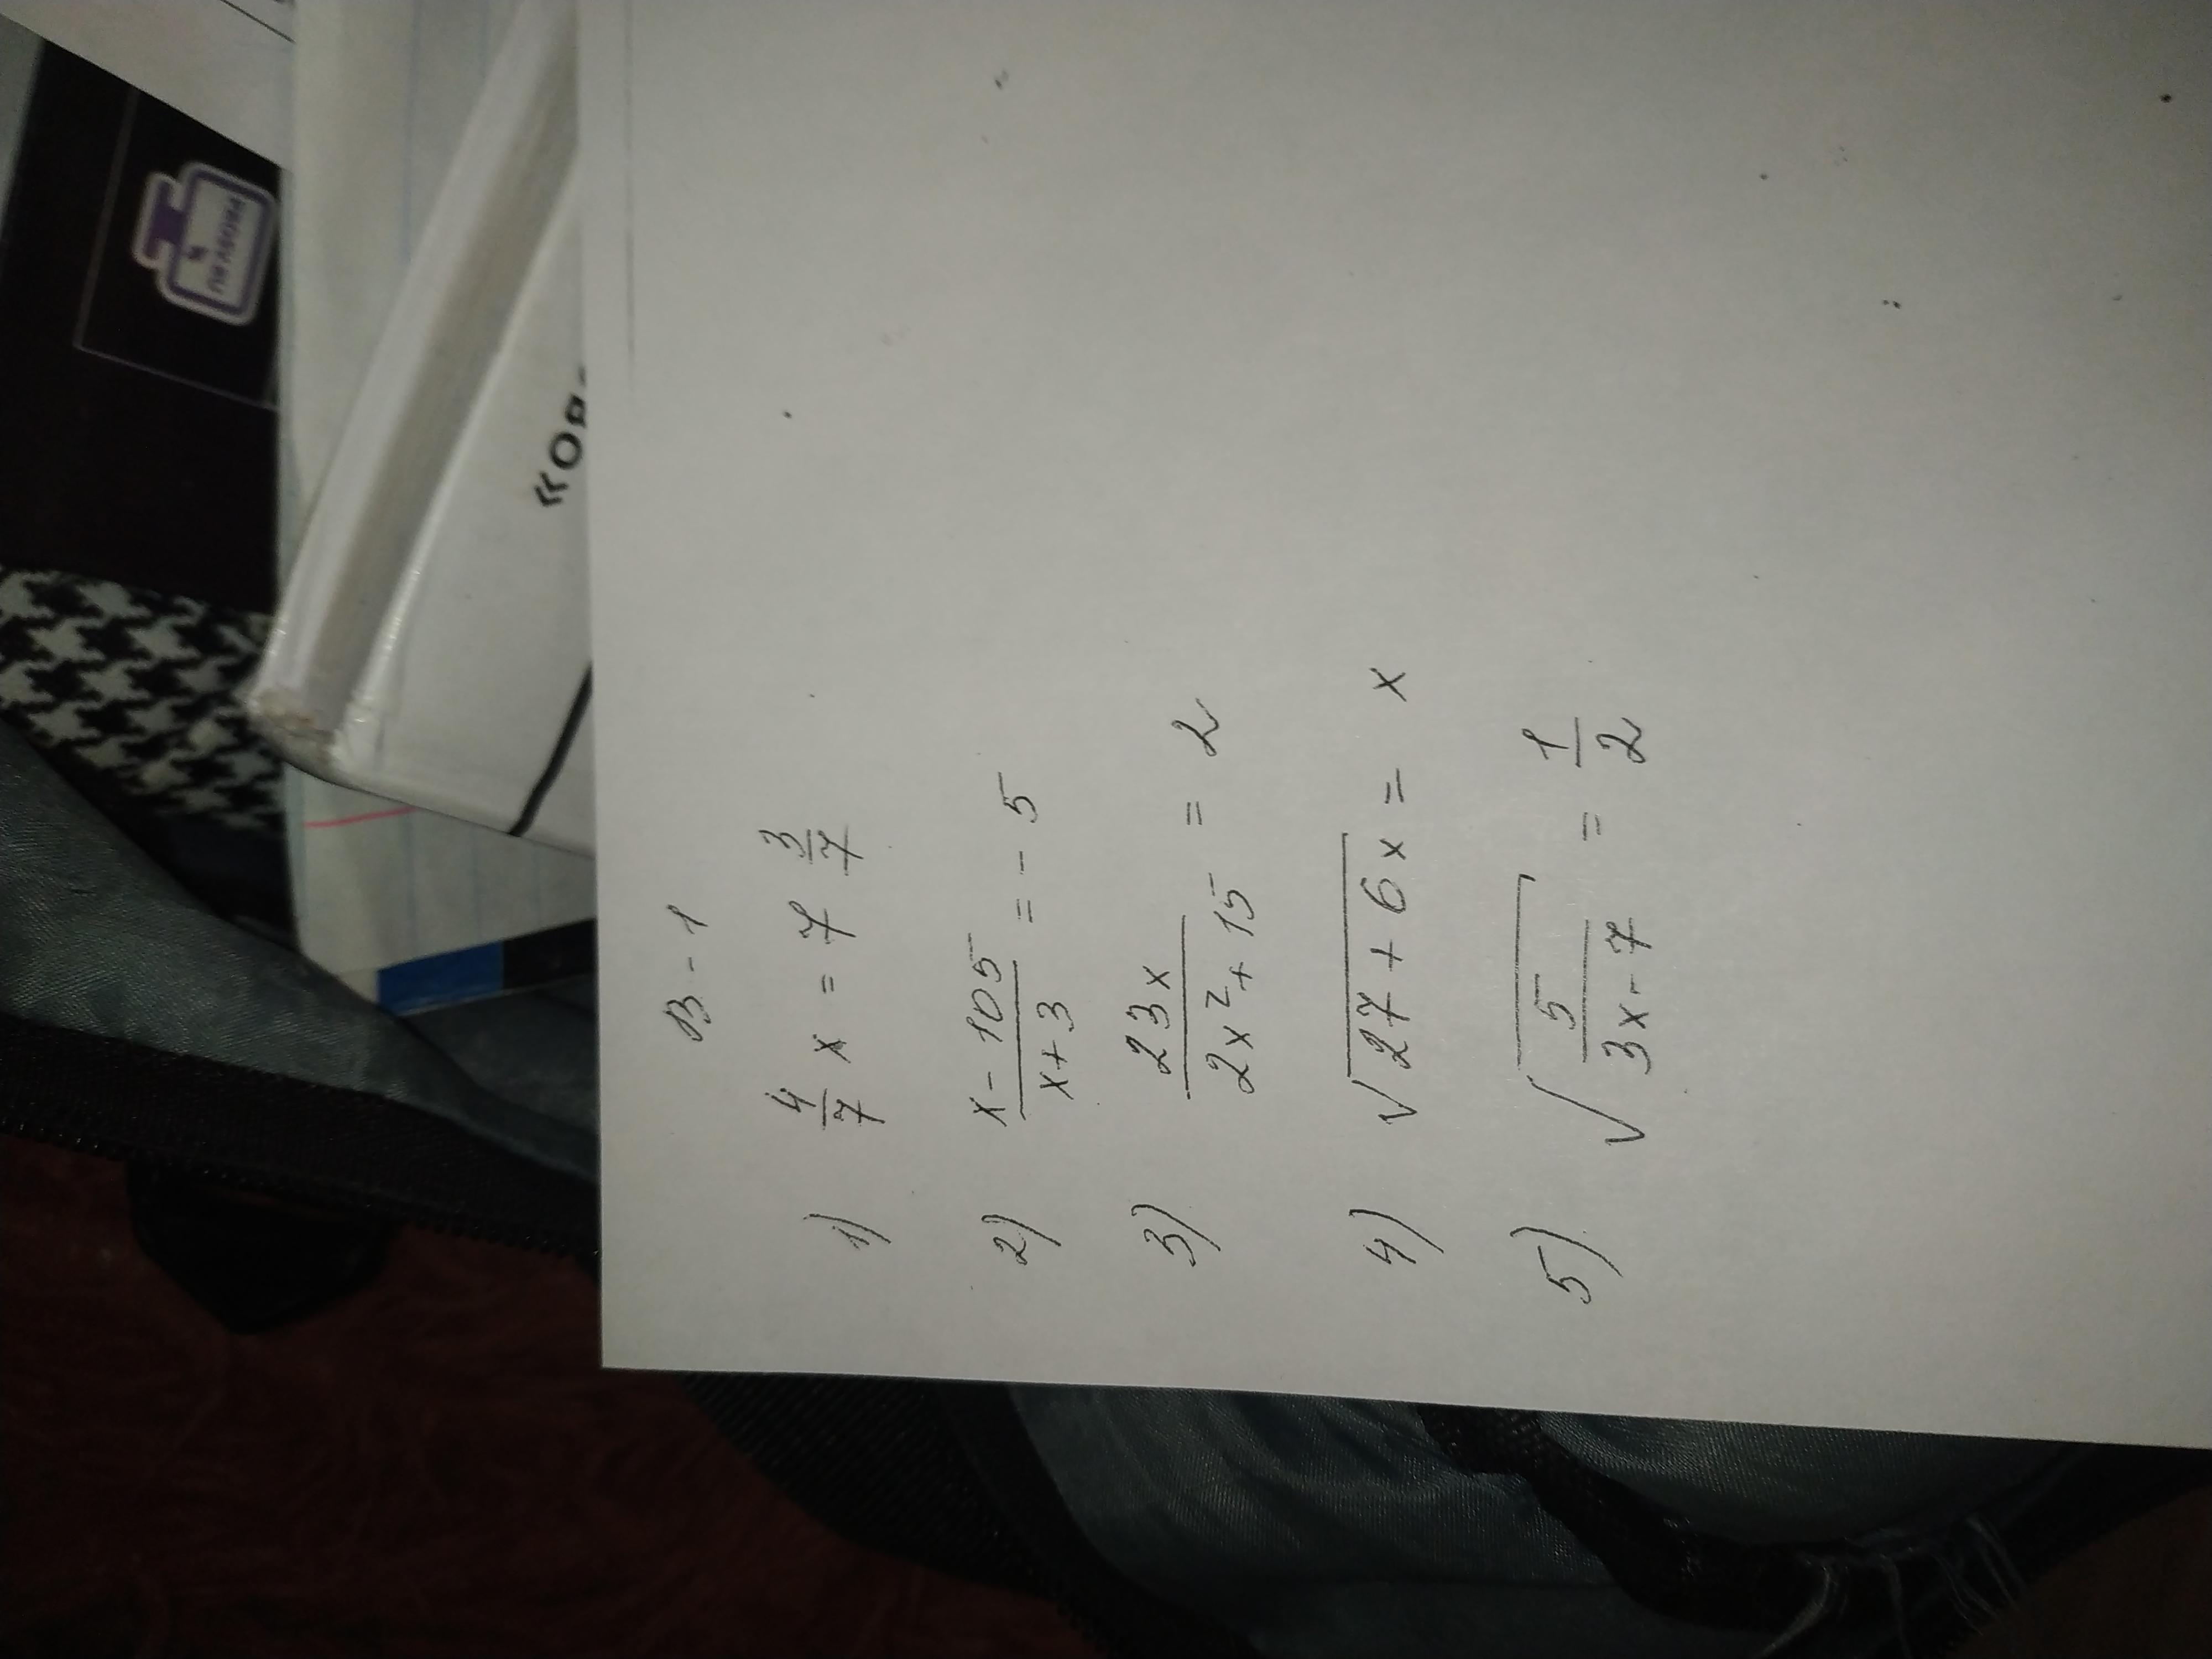 В-1
1) 4/7 x = 7 3/7
2) (x-105)/(x+3) = -5
3) 23x/(2x²+15) = 2
4) √(27+6x) = x
5) √(5/(3x-7)) = 1/2